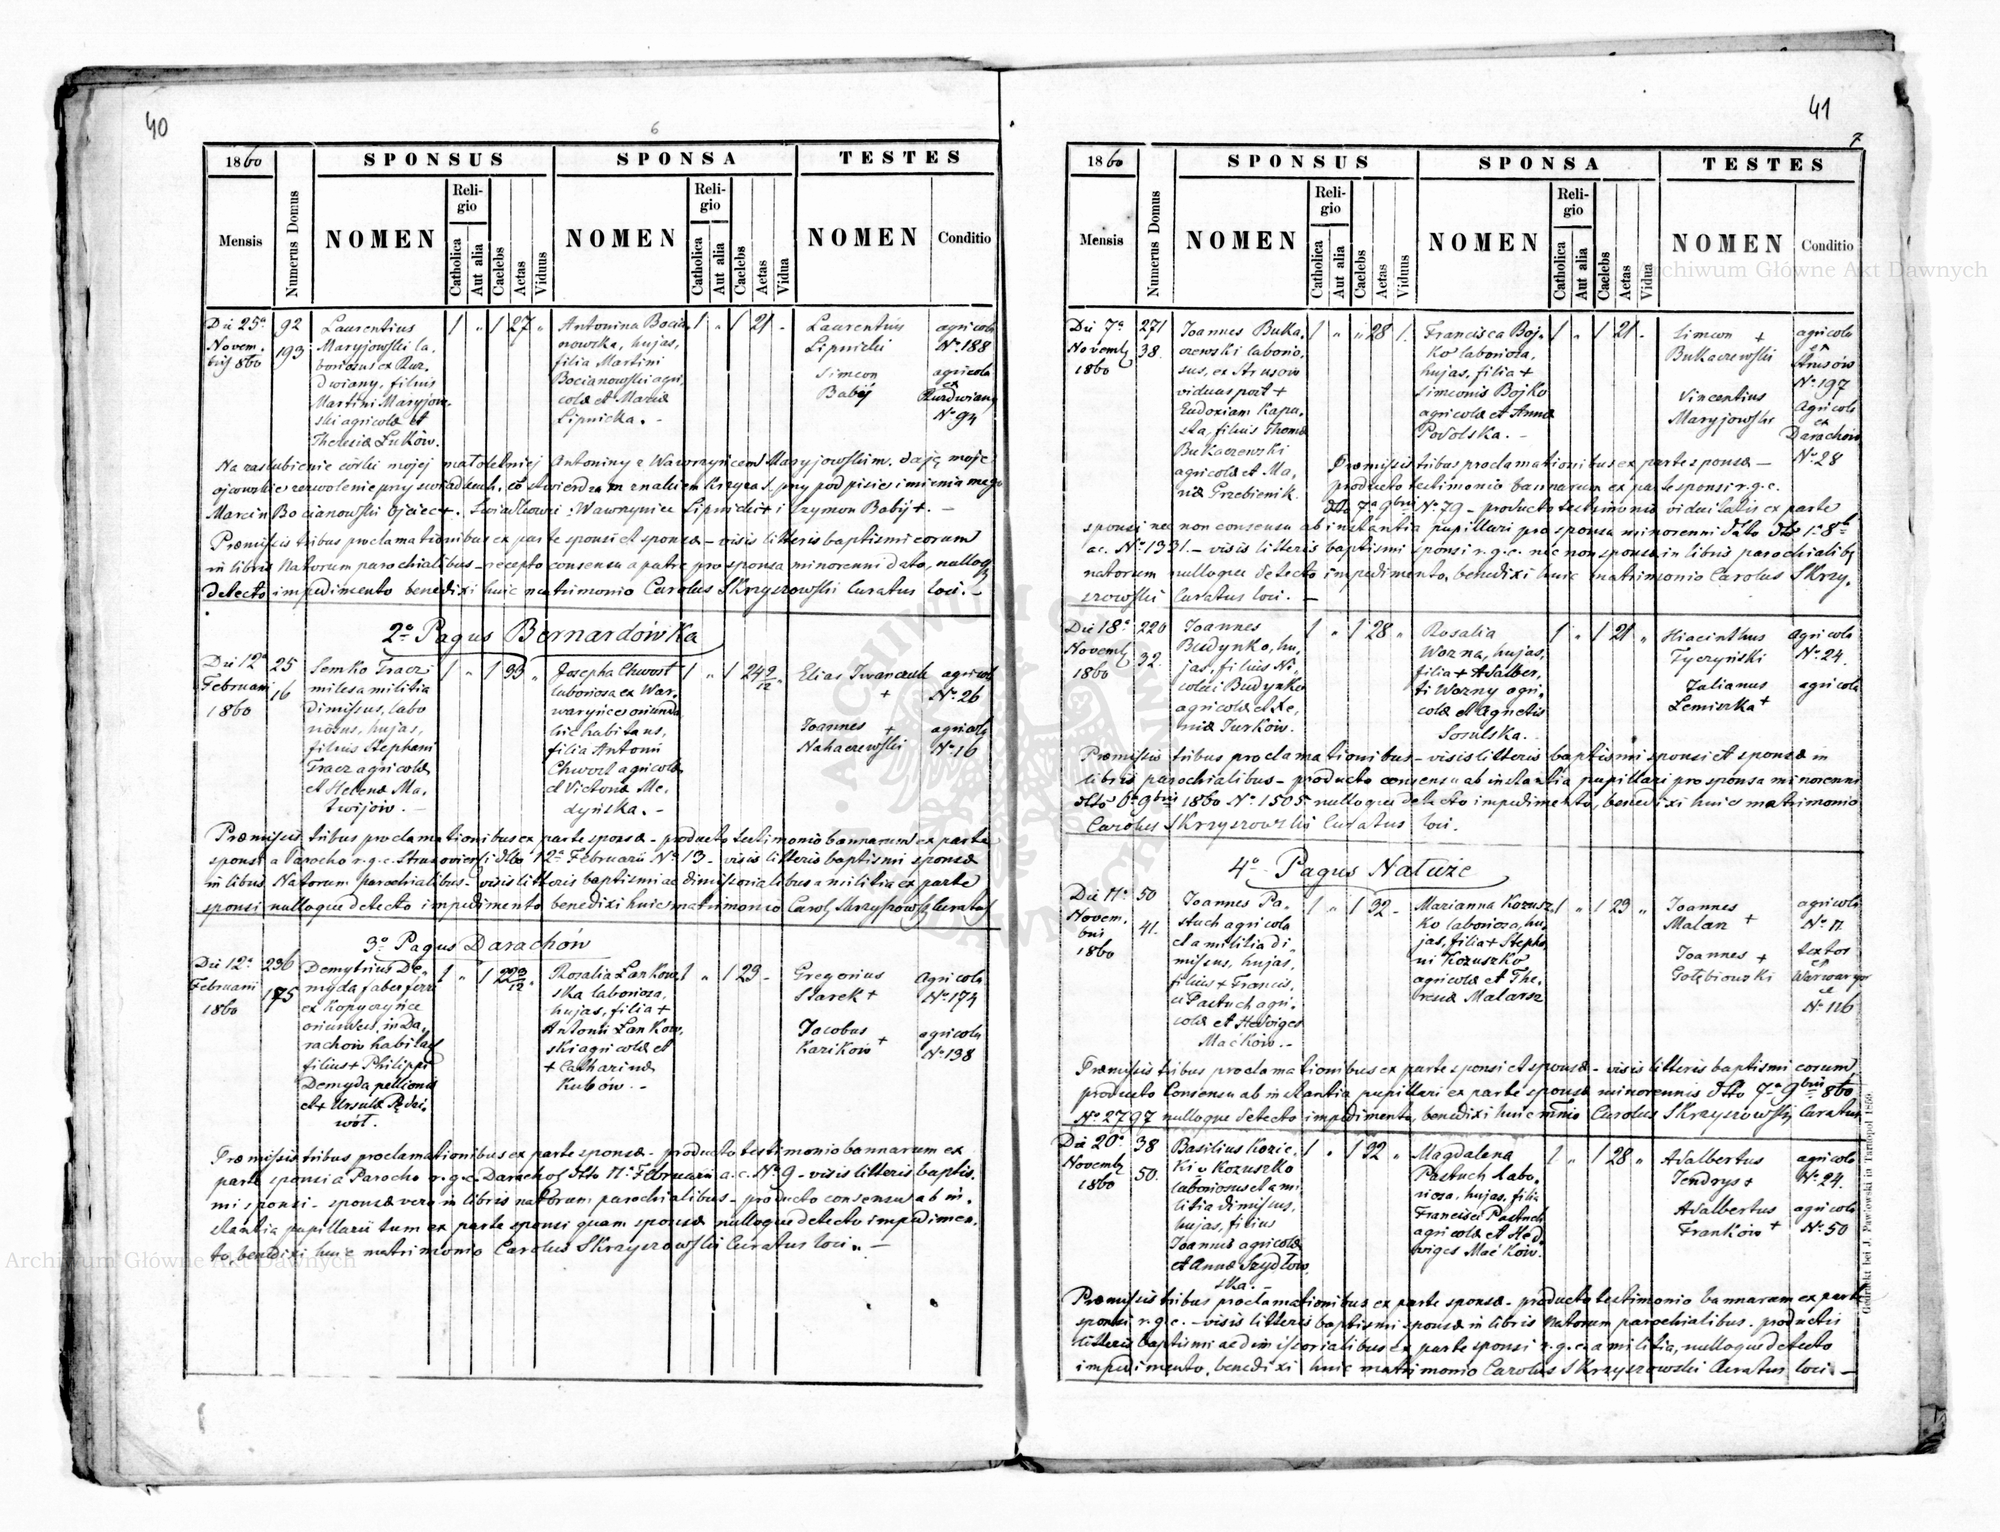 40
6
1860
Numerus Domus
SPONSUS
SPONSA
TESTES
Mensis
NOMEN
Religio
Catholica
Aut alia
Caelebs
Aetas
Viduus
NOMEN
Religio
Catholica
Aut alia
Caelebs
Aetas
Vidua
NOMEN
Conditio
Die 25a Novembris 1860
92
193
Laurentius
Maryjowski la,
boriosus ex Kur,
dwiany, filius
Martini Maryjow,
ski agricolæ et
Theresiæ Luków.
1 " 1 27 "
Antonina Bocia,
nowska, hujas,
filia Martini
Bocianowski agri,
colæ et Mariæ
Lipnicka. -
1 " 1 21 -
Laurentius
Lipnicki
Simeon
Babij
agricola
No 188
agricola
ex
Kurdwiany
No 94
Na zaslubienie córki mojej małoletniej Antoniny z Wawrzyńcem Maryjowskim, daję moje
ojcowskie zezwolenie przy swiadkach, co stwierdzam znakiem krzyża S. przy podpisie imienia mego
Marcin Bocianowski Ojciec +. Swiadkowie: Wawrzyniec Lipnicki + i Szymon Babij +. -
Præmissis tribus proclamationibus ex parte sponsi et sponsæ - visis litteris baptismi eorum
in libris Natorum parochialibus - recepto consensu a patre pro sponsa minorenni dato, nulloq
detecto impedimento benedixi huic matrimonio Carolus Skrzyszowski Curatus loci. -
2o Pagus Bernardówka
Die 12a
Februarii
1860
25
16
Semko Tracz
miles a militia
dimissus, labo
riosus, hujas,
filius Stephani
Tracz agricolæ
et Helenæ Ma,
twijow. -
1 " 1 33 "
Josepha Chwost
laboriosa ex War,
waryńce oriunda
hic habitans,
filia Antonii
Chwost agricolæ
et Victoriæ Me,
dyńska. -
1 " 1 24 9/12 "
Elias Iwanczuk
+
Joannes +
Nahaczewski
agricola
No 26
agricola
No 16
Præmissis tribus proclamationibus ex parte sponsæ - producto testimonio bannorum ex parte
sponsi a Parocho r.g.c. Strusoviensi ddto 12a Februarii No 13 - visis litteris baptismi sponsæ
in libris Natorum parochialibus - visis litteris baptismi ac dimissorialibus a militia ex parte
sponsi nulloque detecto impedimento benedixi huic matrimonio Carolus Skrzyszowski Curatus
3o Pagus Darachów
Die 12a
Februarii
1860
236
175
Demytrius De,
myda faber ferri
ex Kopyczyńce
oriundus, in Da,
rachów habitans
filius + Philippi
Demyda pellionis
et + Ursulæ
1 " 1 22 "
Rosalia Lankow,
ska laboriosa,
hujas, filia +
Antonii Lankow,
ski agricolæ et
+ Catharinæ
Kubów. -
1 " 1 23 -
Gregorius
Starek +
Jacobus
Kazików +
agricola
No 174
agricola
No 138
Præmissis tribus proclamationibus ex parte sponsæ - producto testimonio bannorum ex
parte sponsi a Parocho r.g.c. Darachof ddto 11a Februarii a.c. No 9 - visis litteris baptis,
mi sponsi - sponsæ vero in libris natorum parochialibus - producto consensu ab in,
stantia pupillari tum ex parte sponsi quam sponsæ nulloque detecto impedimen,
to, benedixi huic matrimonio Carolus Skrzyszowski Curatus loci. -
41
7
1860
Numerus Domus
SPONSUS
SPONSA
TESTES
Mensis
NOMEN
Religio
Catholica
Aut alia
Caelebs
Aetas
Viduus
NOMEN
Religio
Catholica
Aut alia
Caelebs
Aetas
Vidua
NOMEN
Conditio
Die 7a
Novemb
1860
271
38.
Joannes Buka,
czewski laborio,
sus, ex Strusow
viduus post +
Eudoxiam Kapu,
sta, filius Thomæ
Bukaczewski
agricolæ et Ma,
riæ Grzebienik.
1 " " 28 1.
Francisca Boj,
ko laboriosa,
hujas, filia +
Simeonis Bojko
agricolæ et Annæ
Podolska. -
1 " 1 21 -
Simeon +
Bukaczewski
Vincentius
Maryjowski
agricola
ex
Strusów
No 197
Agricola
ex
Darachow
No 28
Præmissis tribus proclamationibus ex parte sponsæ -
producto testimonio bannorum ex parte sponsi r.g.c.
ddto 7a 9bris No 79 - producto testimonio viduitatis ex parte
sponsi nec non consensu ab instantia pupillari pro sponsa minorenni ddto
a.c. No 1331. - visis litteris baptismi sponsi r.g.c. nec non sponsæ in libris parochialib
natorum nulloque detecto impedimento, benedixi huic matrimonio Carolus Skrzy,
szowski Curatus loci. -
Die 18a
Novemb
1860
220
32.
Joannes
Budynko, hu,
jas, filius Ni,
colai Budynko
agricolæ et Xe,
niæ Turków.
1 " 1 28 "
Rosalia
Wozna, hujas,
filia + Adalber,
ti Wozny agri,
colæ et Agnetis
Sosulska. -
1 " 1 21 "
Hiacinthus
Tyczyński
Julianus
Lemiszka +
Agricola
No 24.
agricola
Præmissis tribus proclamationibus - visis litteris baptismi sponsi et sponsæ in
libris parochialibus - producto consensu ab instantia pupillari pro sponsa minorenni
ddto 6a 9bris 1860 No 1505 nulloque detecto impedimento, benedixi huic matrimonio
Carolus Skrzyszowski Curatus loci.
4o Pagus Nałuże
Die 11a
Novem,
bris
1860
50
41.
Joannes Pa,
stuch agricola
et a militia di,
missus, hujas,
filius + Francis,
ci Pastuch agri,
colæ et Hedviges
Maćków. -
1 " 1 32 -
Marianna Kozusz,
ko laboriosa, hu,
jas, filia + Stepha,
ni Kozuszko
agricolæ et The,
resiæ Malarz
1 " 1 23 "
Joannes
Malarz +
Joannes +
Gołębiowski
agricola
No 11.
textor
ex
No 116
Præmissis tribus proclamationibus ex parte sponsi et sponsæ - visis litteris baptismi eorum
producto Consensu ab instantia pupillari ex parte sponsæ minorennis ddto 7a 9bris 1860
No 2797 nulloque detecto impedimento, benedixi huic mtrio Carolus Skrzyszowski Curatus
Die 20a
Novemb
1860
38
50.
Basilius Kozic,
ki v Kozuszko
laboriosus et a mi
litia dimissus,
hujas, filius
Joannis agricolæ
et Annæ Szydłow
ska. -
1 " 1 32 "
Magdalena
Pastuch labo,
riosa, hujas, filia
Francisci Pastuch
agricolæ et Hed,
viges Maćków.
1 " 1 28 "
Adalbertus
Jendrys +
Adalbertus
Franków +
agricola
No 24.
agricola
No 50
Præmissis tribus proclamationibus ex parte sponsæ - producto testimonio bannorum ex parte
sponsi r.g.c. - visis litteris baptismi sponsæ in libris Natorum parochialibus - productis
litteris baptismi ac dimissorialibus ex parte sponsi r.g.c. a militia, nulloque detecto
impedimento, benedixi huic matrimonio Carolus Skrzyszowski Curatus loci. -
Gedrukt bei J. Pawłowski in Tarnopol 1859.
Archiwum Główne Akt Dawnych
Archiwum Główne Akt Dawnych